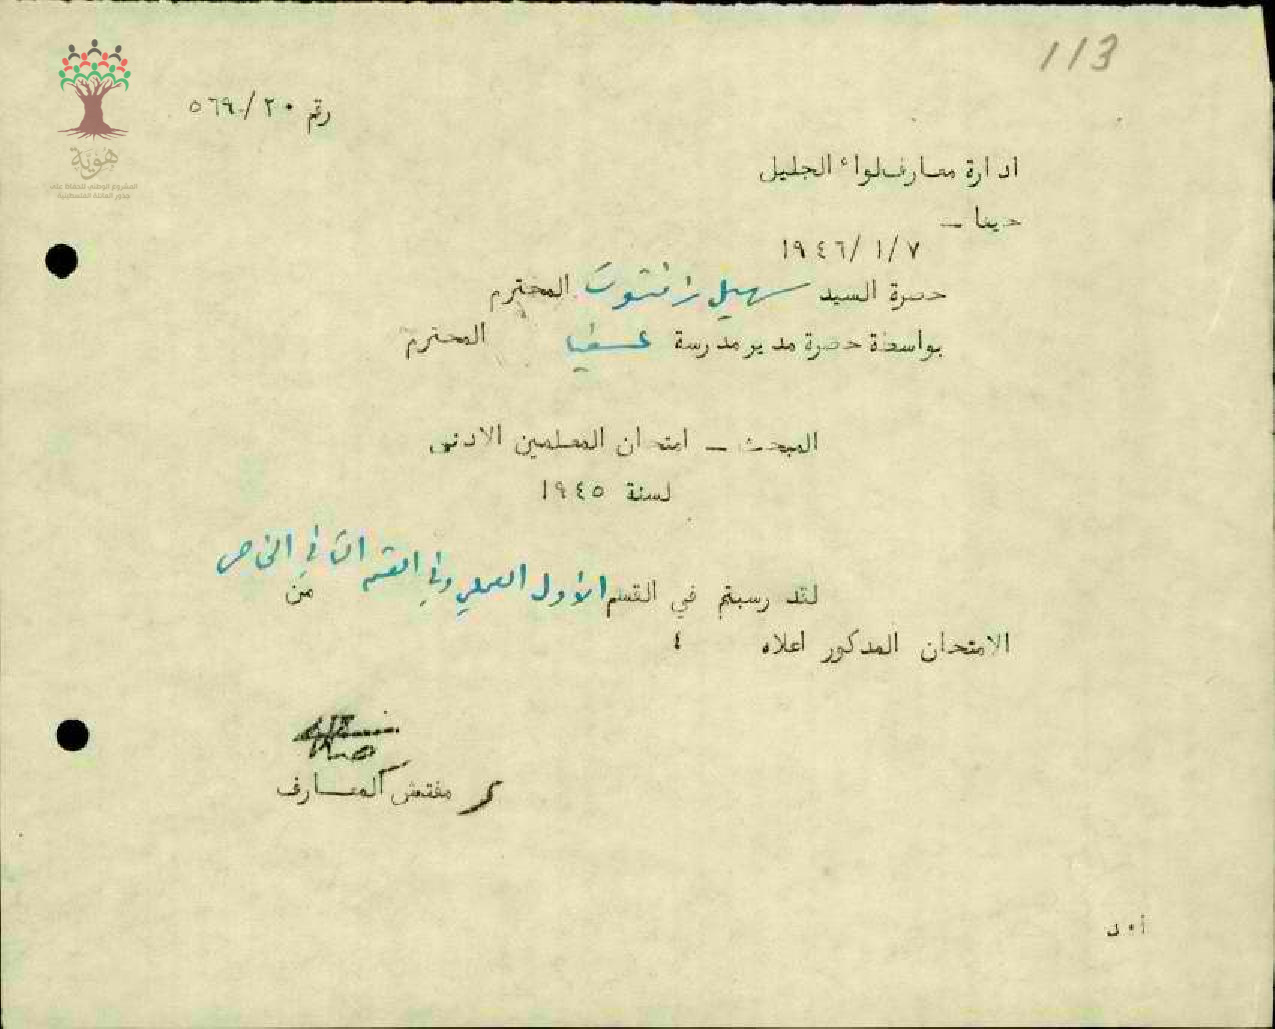 113
رقم ٢٠/٥٦٩
هوية
المشروع الوطني للحفاظ على
جذور العائلة الفلسطينية
ادارة معارف لواء الجليل
حيفا –
١٩٤٦/١/٧
حضرة السيد سهيل المحترم
بواسطة حضرة مدير مدرسة عسفيا المحترم
المبحث – امتحان المعلمين الادنى
لسنة ١٩٤٥
لقد رسبتم في القسم الأول العملي وفي القسم الثاني الخاص من
الامتحان المذكور اعلاه ؛
مفتش المعارف
أ٠د